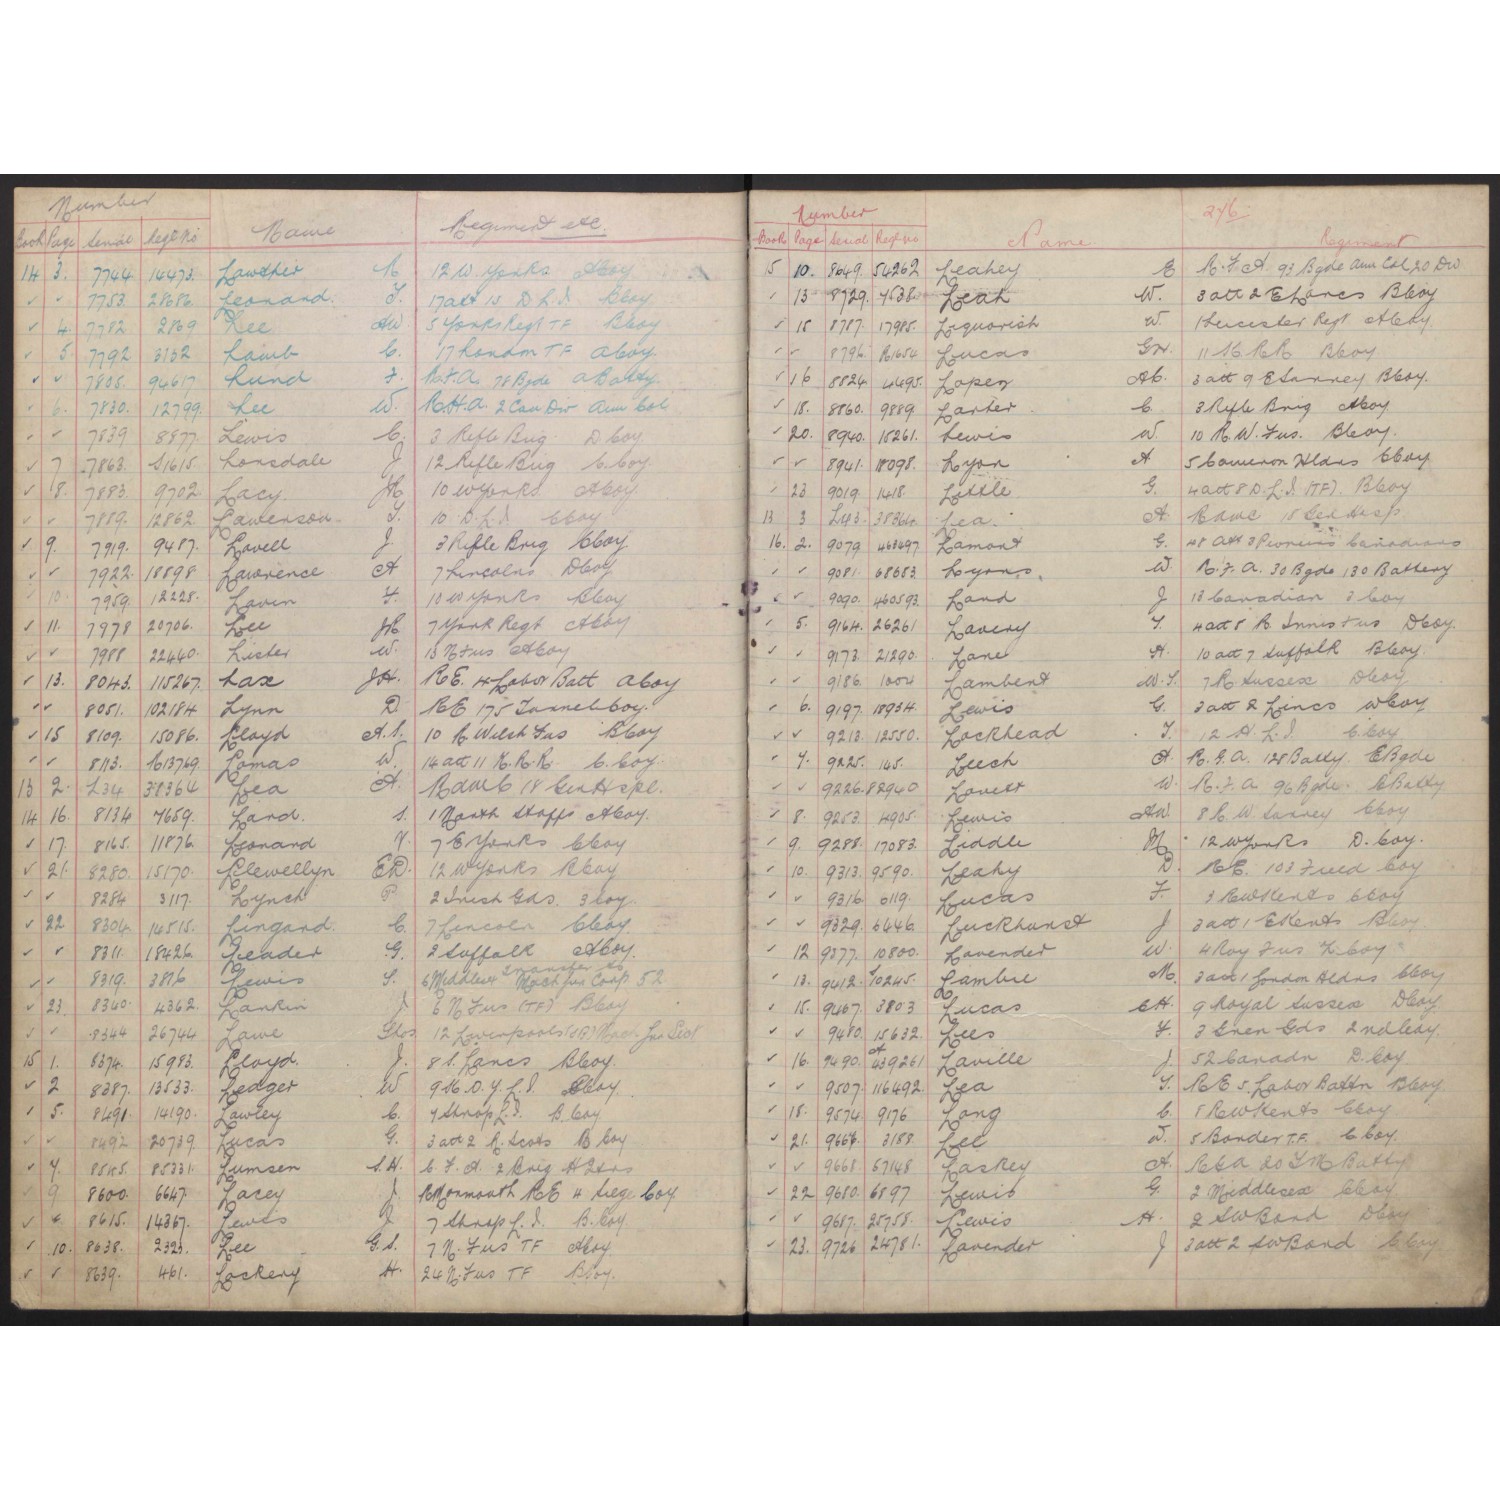 Number
Book Page Serial Regt No Name Regiment etc.
14 3. 7744 14473. Lowther R 12 W. Yorks A Coy
✓ ✓ 7753. 28686. Leonard. T. 17 att 15 D.L.I. B Coy
✓ 4. 7782 2869 Lee AW 5 Yorks Regt TF B Coy
✓ 5. 7792 3132 Lamb C. 17 London TF A Coy.
✓ ✓ 7805. 94617 Lund F. R.F.A. 78 Bgde A Batty.
✓ 6. 7830. 12799. Lee W. R.H.A. 2 Cav Div Am Col
✓ ✓ 7839 8877. Lewis C. 3 Rifle Brig. D Coy.
✓ 7 7863. S1615. Lonsdale J 12 Rifle Brig C. Coy.
✓ 8. 7883. 9702. Lacy. JH 10 W Yorks. A Coy.
✓ ✓ 7889. 12862. Lawenson. T. 10. D.L.I. C Coy.
✓ 9. 7919. 9487. Lovell J. 3 Rifle Brig C Coy
✓ ✓ 7922. 18898 Lawrence A 7 Lincolns D Coy
✓ 10. 7959. 12225. Lavin F. 10 W Yorks B Coy
✓ 11. 7978 20706. Lee JH 7 York Regt A Coy
✓ ✓ 7988 22440. Lister W. 13 N Fus A Coy
✓ 13. 8043. 115267. Lax JH. R.E. 4 Labor Batt A Coy
✓ ✓ 8051. 102184 Lynn D RE 175 Tunnel Coy.
✓ 15 8109. 15086. Lloyd A.S. 10 R Welsh Fus B Coy
✓ ✓ 8113. R13769. Lomas W. 14 att 11 K.R.R. C. Coy.
13 2. L34 38364 Lea A. RAMC 18 Gen Hspl.
14 16. 8134 7659. Land. S. 1 North Staffs A Coy.
✓ 17. 8165. 11876. Leonard 7 E Yorks C Coy
✓ 21. 8280. 15170. Llewellyn ED. 12 W Yorks B Coy
✓ ✓ 8284 3117. Lynch P 2 Irish Gds. 3 Coy.
✓ 22 8304. 14515. Lingard. C. 7 Lincoln C Coy.
✓ ✓ 8311. 18426. Leader G. 2 Suffolk A Coy.
✓ ✓ 8319. 3876 Lewis S. 6 Middlesex transfer to Mach Gun Corp 52
✓ 23. 8340. 4362. Larkin J 6 N Fus (TF) B Coy
✓ ✓ 8344 26744 Lawe Geo 12 Liverpools Mach Gn Sect
15 1. 8374. 15983. Lloyd. J. 8 S. Lancs B Coy.
✓ 2 8387. 13533. Ledger W 9 K.O.Y.L.I. C Coy.
✓ 5. 8491. 14190. Lawley C. 7 Shrop L.I. B. Coy
✓ ✓ 8492 20739 Lucas G. 3 att 2 R. Scots B Coy
✓ 7. 8545. 85331. Lumsen S.H. C.F.A. 2 Brig H Qtrs
✓ 9 8600. 6647. Lacey J. R Monmouth RE 4 Siege Coy
✓ ✓ 8615. 14367. Lewis J. 7 Shrop L.I. B. Coy
✓ 10. 8638. 2323. Lee G.S. 7 N. Fus TF A Coy
✓ ✓ 8639. 461. Lockery H. 24 N. Fus TF B Coy.
Number 246
Book Page Serial Regt No Name Regiment
15 10. 8649. 54262 Leahey E R.F.A. 93 Bgde Am Col, 20 Div
✓ 13 8729. 4538 Leah W. 3 att 2 E Lancs B Coy
✓ 15 8787. 17985. Liquorish W. 1 Leicester Regt A Coy
✓ ✓ 8796. R1654 Lucas GH. 11 K.R.R B Coy
✓ 16 8824. 4495. Lopez AC. 3 att 9 E Surrey B Coy.
✓ 18. 8860. 9889. Larter C. 3 Rifle Brig A Coy
✓ 20. 8940. 15261. Lewis W 10 R.W. Fus. B Coy.
✓ ✓ 8941. 18098. Lyon A 5 Cameron Hldrs C Coy
✓ 23 9019. 1418. Little G. 4 att 8 D.L.I. (TF). B Coy
13 3 L43. 38364. Lea. A. RAMC 18 Gen Hosp
16. 2. 9079. 463497 Lamont G. 48 Att 3 Pioneers Canadians
✓ ✓ 9081. 68683. Lyons. W. R.F.A. 30 Bgde 130 Battery
✓ ✓ 9090. 460593. Land J 13 Canadian 3 Coy
✓ 5. 9164. 26261 Lavery T. 4 att 8 R. Innis Fus D Coy.
✓ ✓ 9173. 21290. Lane H. 10 att 7 Suffolk B Coy.
✓ ✓ 9186. 1004 Lambert W.T. 7 R. Sussex D Coy
✓ 6. 9197. 18934. Lewis G. 3 att 2 Lincs W Coy
✓ ✓ 9213. 12550. Lockhead T. 12 H.L.I. C Coy
✓ 7. 9225. 145. Leech A R.G.A. 128 Batty. E Bgde
✓ 9226. 82940 Lovett W. R.F.A. 96 Bgde. C Batty
✓ 8. 9253. 4905. Lewis AW 8 R.W. Surrey C Coy
✓ 9. 9288. 17083. Liddle M 12 W Yorks D. Coy.
✓ 10. 9313. 9590. Leahy D. R.E. 103 Field Coy
✓ ✓ 9316. 6119. Lucas F. 3 RW Kents C Coy
✓ ✓ 9329. 6446. Luckhurst J 3 att 1 E Kents B Coy
✓ 12 9377. 10800. Lavender W. 4 Roy Fus Z Coy
✓ 13. 9412. 10245. Lambie M. 3 att 1 Gordon Hldrs C Coy
✓ 15. 9467. 3803 Lucas CH. 9 Royal Sussex D Coy
✓ ✓ 9480. 15632. Lees F. 3 Gren Gds 2nd Coy.
✓ 16. 9490. A439261 Laville J 52 Canadn D. Coy
✓ ✓ 9507. 116492. Lea T. RE 5. Labor Battn B Coy
✓ 18. 9574. 9176 Long C. 8 RW Kents C Coy
✓ 21. 9664. 3188. Lee W. 5 Border TF. C Coy.
✓ ✓ 9668. 67148. Laskey A. RGA 20 T M Batty
✓ 22 9680. 6897 Lewis G. 2 Middlesex C Coy
✓ ✓ 9687. 25758. Lewis H. 2 SW Bord D Coy
✓ 23. 9726 24781. Lavender J 3 att 2 SW Bord C Coy